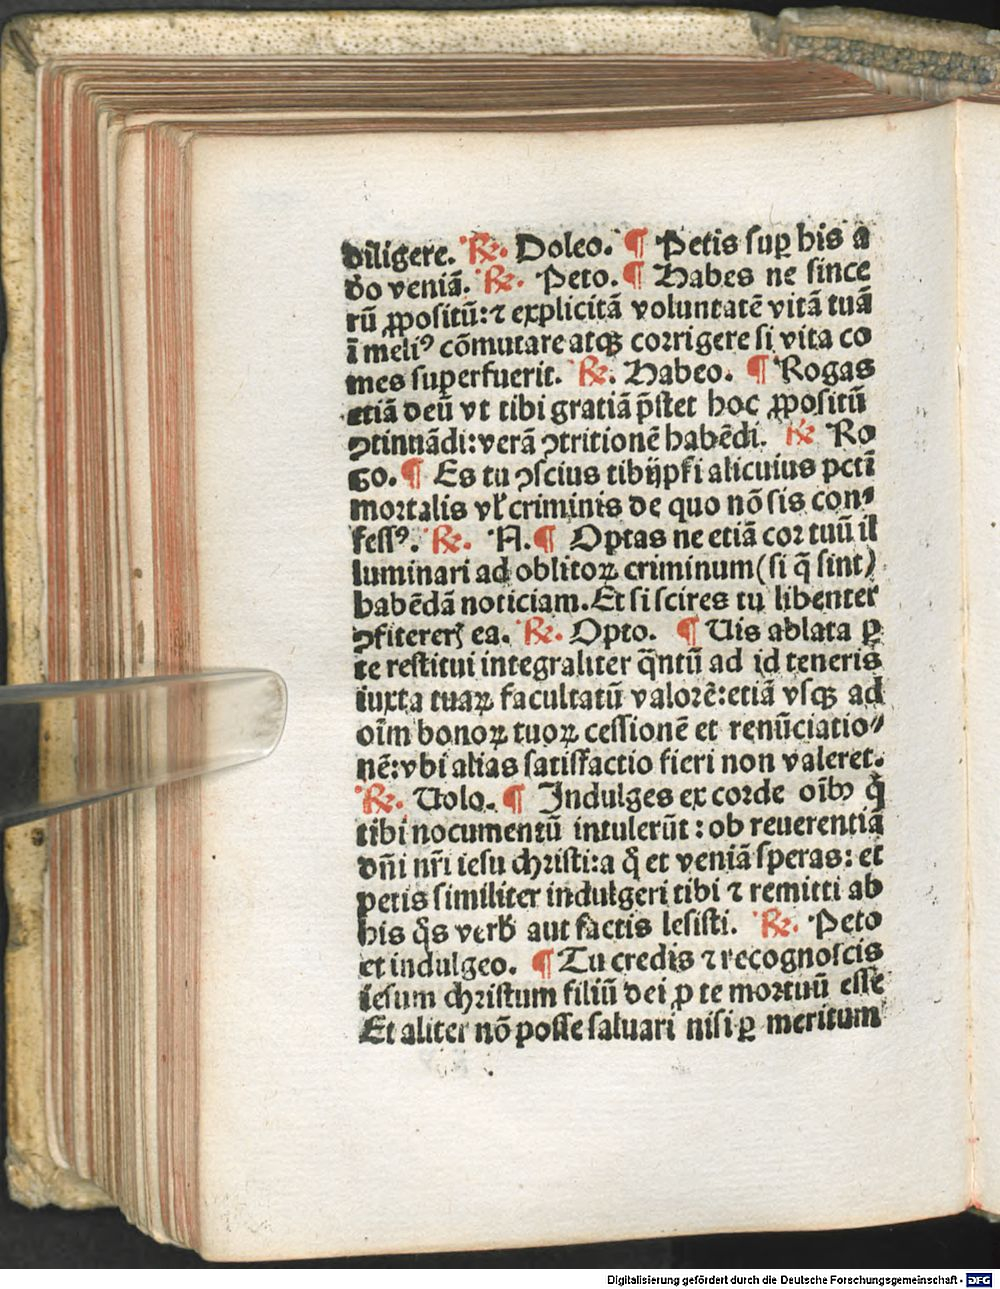 diligere. ℟. Doleo. ¶ Petis sup̱ his a
dño veniā. ℟. Peto. ¶ Habes ne since
rū ꝓpositū: ⁊ explicitā voluntatē vitā tuā
ī meliꝰ cōmutare atqꝫ corrigere si vita co
mes superfuerit. ℟. Habeo. ¶ Rogas
etiā deū vt tibi gratiā p̄stet hoc ꝓpositū
ꝯtinuādi: verā ꝯtritionē habēdi. ℟ Ro
go. ¶ Es tu ꝯscius tibijpsi alicuius pctī
mortalis vł criminis de quo nō sis con⸗
fessꝰ. ℟. N. ¶ Optas ne etiā cor tuū il
luminari ad oblitoꝝ criminum (si q̄ sint)
habēdā noticiam. Et si scires tu libenter
ꝯfitererꝭ ea. ℟. Opto. ¶ Vis ablata ꝑ
te restitui integraliter q̄ntū ad id teneris
iuxta tuaꝝ facultatū valorē: etiā vsqꝫ ad
oīm bonoꝝ tuoꝝ cessionē et renūciatio⸗
nē: vbi alias satisfactio fieri non valeret.
℟. Volo. ¶ Indulges ex corde oībꝰ q̇
tibi nocumentū intulerūt: ob reuerentiā
dñi nr̄i iesu christi: a q̊ et veniā speras: et
petis similiter indulgeri tibi ⁊ remitti ab
his q̊s verbꝭ aut factis lesisti. ℟. Peto
et indulgeo. ¶ Tu credis ⁊ recognoscis
iesum christum filiū dei ꝓ te mortuū esse
Et aliter nō posse saluari nisi ꝑ meritum
Digitalisierung gefördert durch die Deutsche Forschungsgemeinschaft - DFG